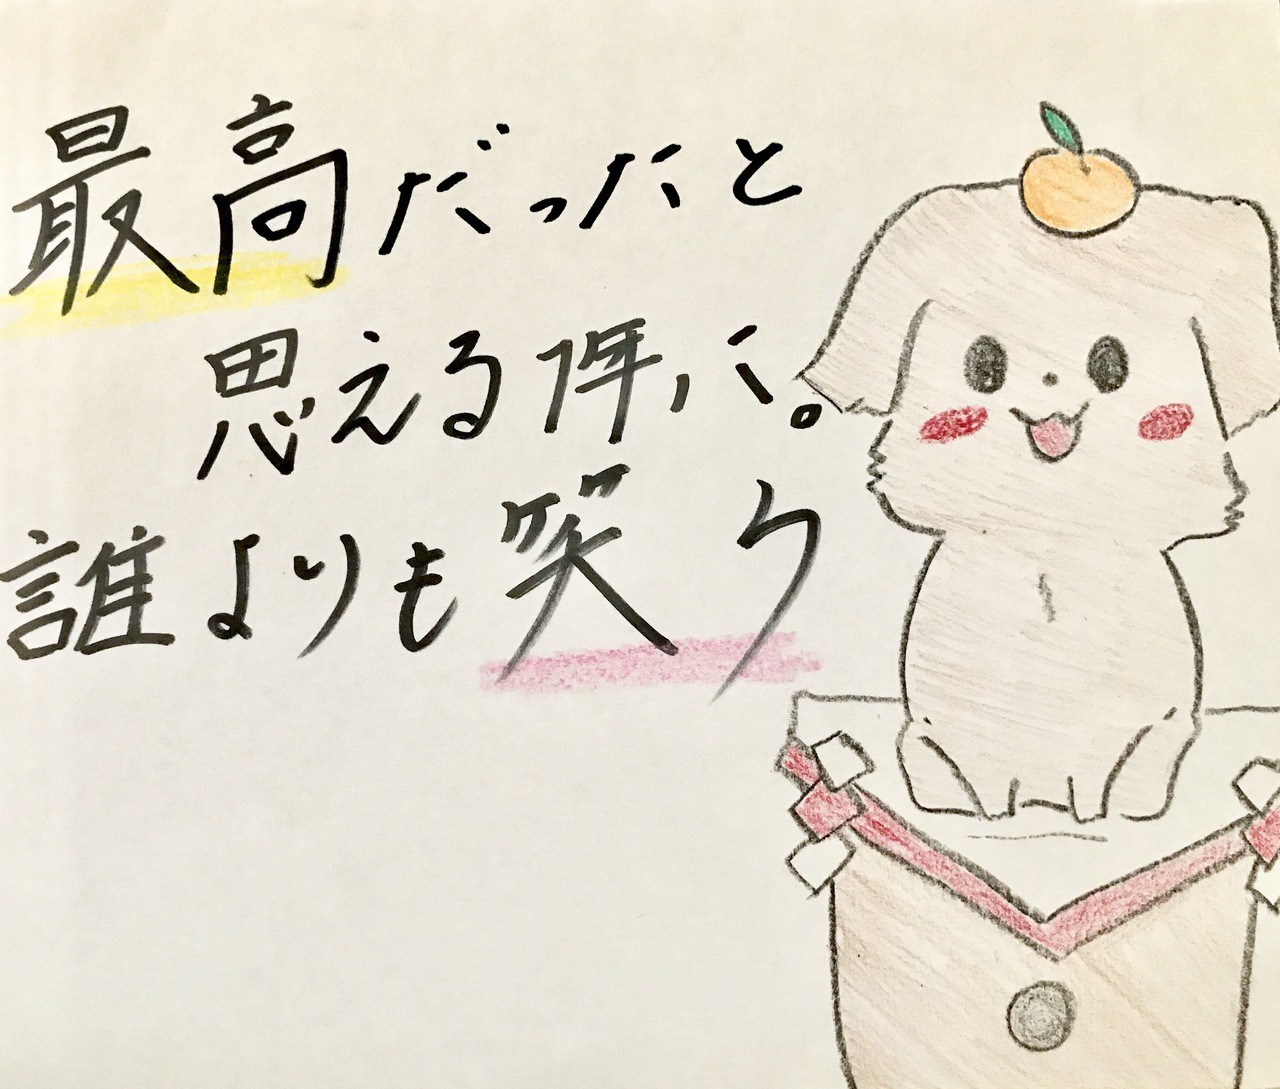 最高だったと
思える1年に。
誰よりも笑う